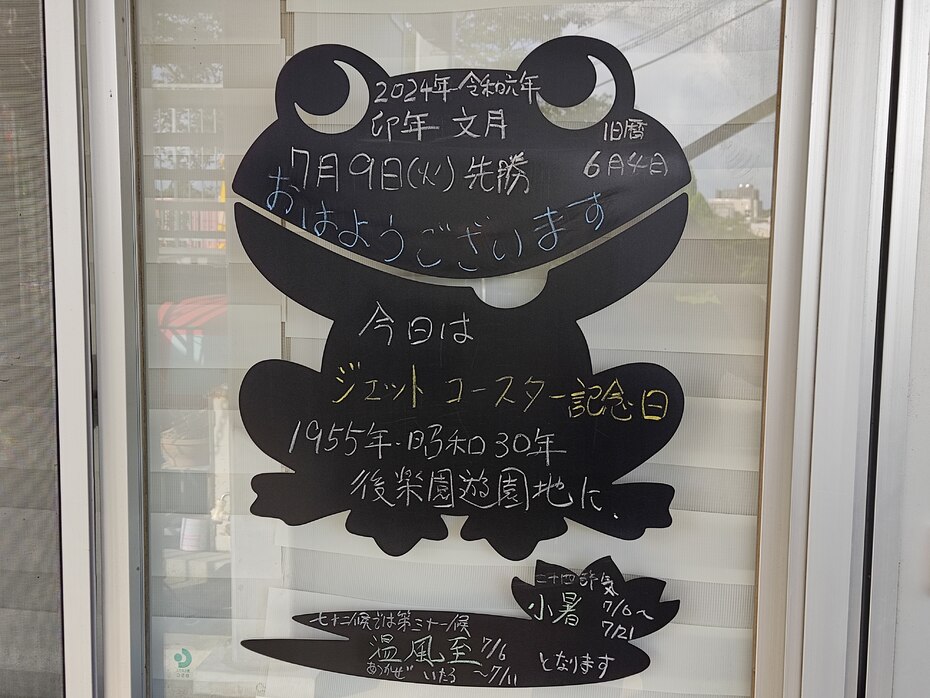 2024年 令和六年
卯年 文月
旧暦
6月4日
7月9日(火) 先勝
おはようございます
今日は
ジェットコースター記念日
1955年・昭和30年
後楽園遊園地に、
二十四節気
小暑 7/6〜
7/21
七十二候では第三十一候
温風至 7/6
あつかぜ いたる 〜7/11
となります